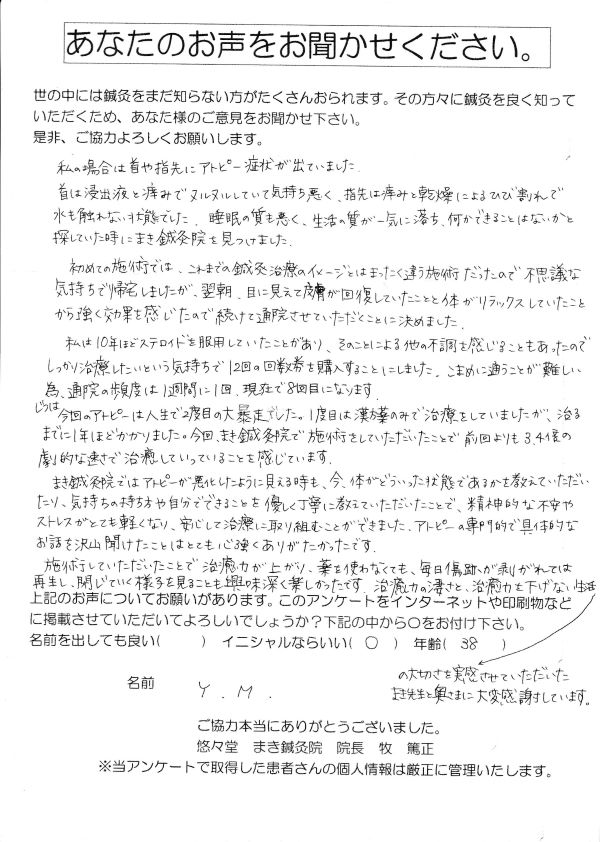 あなたのお声をお聞かせください。
世の中には鍼灸をまだ知らない方がたくさんおられます。その方々に鍼灸を良く知って
いただくため、あなた様のご意見をお聞かせ下さい。
是非、ご協力よろしくお願いします。
私の場合は首や指先にアトピー症状が出ていました。
首は浸出液と痛みでヌルヌルしていて気持ち悪く、指先は痛みと乾燥によるひび割れで
水も触れない状態でした。睡眠の質も悪く、生活の質が一気に落ち、何かできることはないかと
探していた時にまき鍼灸院を見つけました。
初めての施術では、これまでの鍼灸治療のイメージとはまったく違う施術だったので不思議な
気持ちで帰宅しましたが、翌朝、目に見えて皮膚が回復していたことと体がリラックスしていたこと
から強く効果を感じたので続けて通院させていただくことに決めました。
私は10年ほどステロイドを服用していたことがあり、そのことによる他の不調を感じることもあったので
しっかり治療したいという気持ちで12回の回数券を購入することにしました。こまめに通うことが難しい
為、通院の頻度は1週間に1回、現在で8回目になります。
じつは今回のアトピーは人生で2度目の大暴走でした。1度目は漢方薬のみで治療をしていましたが、治る
までに1年ほどかかりました。今回、まき鍼灸院で施術をしていただいたことで前回よりも3、4倍の
劇的な速さで治癒していっていることを感じています。
まき鍼灸院ではアトピーが悪化したように見える時も、今、体がどういった状態であるかを教えていただい
たり、気持ちの持ち方や自分でできることを優しく丁寧に教えていただいたことで、精神的な不安や
ストレスがとても軽くなり、安心して治療に取り組むことができました。アトピーの専門的で具体的な
お話を沢山聞けたことはとても心強くありがたかったです。
施術していただいたことで治癒力が上がり、薬を使わなくても、毎日傷跡が剥がれては
再生し、閉じていく様子を見ることも興味深く楽しかったです。治癒力の凄さと、治癒力を下げない生活
上記のお声についてお願いがあります。このアンケートをインターネットや印刷物など
に掲載させていただいてよろしいでしょうか?下記の中から○をお付け下さい。
名前を出しても良い( ) イニシャルならいい( ○ ) 年齢( 38 )
の大切さを実感させていただいた
名前 Y. M. まき先生と奥さまに大変感謝しています。
ご協力本当にありがとうございました。
悠々堂 まき鍼灸院 院長 牧 篤正
※当アンケートで取得した患者さんの個人情報は厳正に管理いたします。